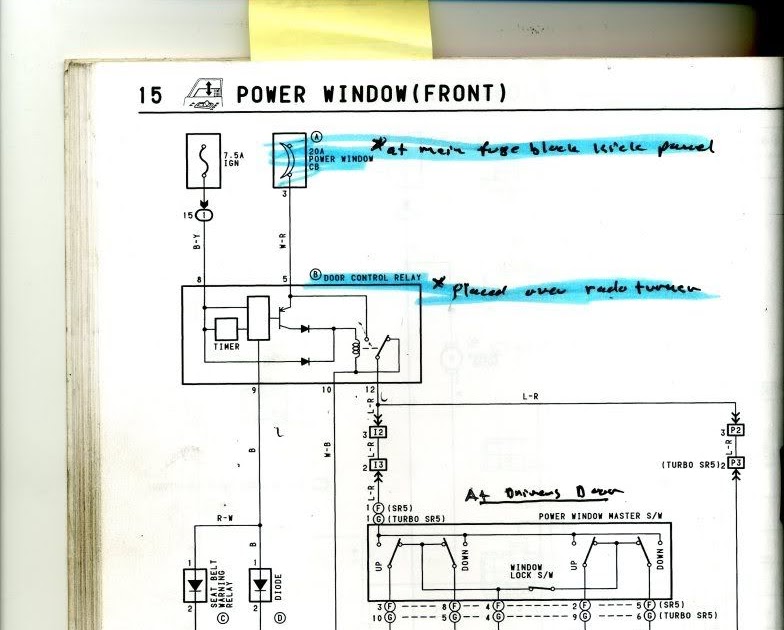 15 POWER WINDOW(FRONT)
7.5A
IGN
A
20A
POWER WINDOW
CB
*at main fuse block kick panel
3
15 1
B-Y
W-R
8
5
B DOOR CONTROL RELAY
*placed over radio turner
TIMER
9
10
12
L-R
L-R
3 I2
L-R
2 I3
L-R
3 P2
L-R
(TURBO SR5) 2 P3
B
W-B
At Drivers Door
1 F (SR5)
1 G (TURBO SR5)
POWER WINDOW MASTER S/W
UP
DOWN
UP
DOWN
WINDOW
LOCK S/W
R-W
B
1
1
SEAT BELT
WARNING
RELAY
DIODE
2
2
C
D
3 F 8 F 4 F 2 F 5 F (SR5)
10 G 5 G 4 G 9 G 6 G (TURBO SR5)